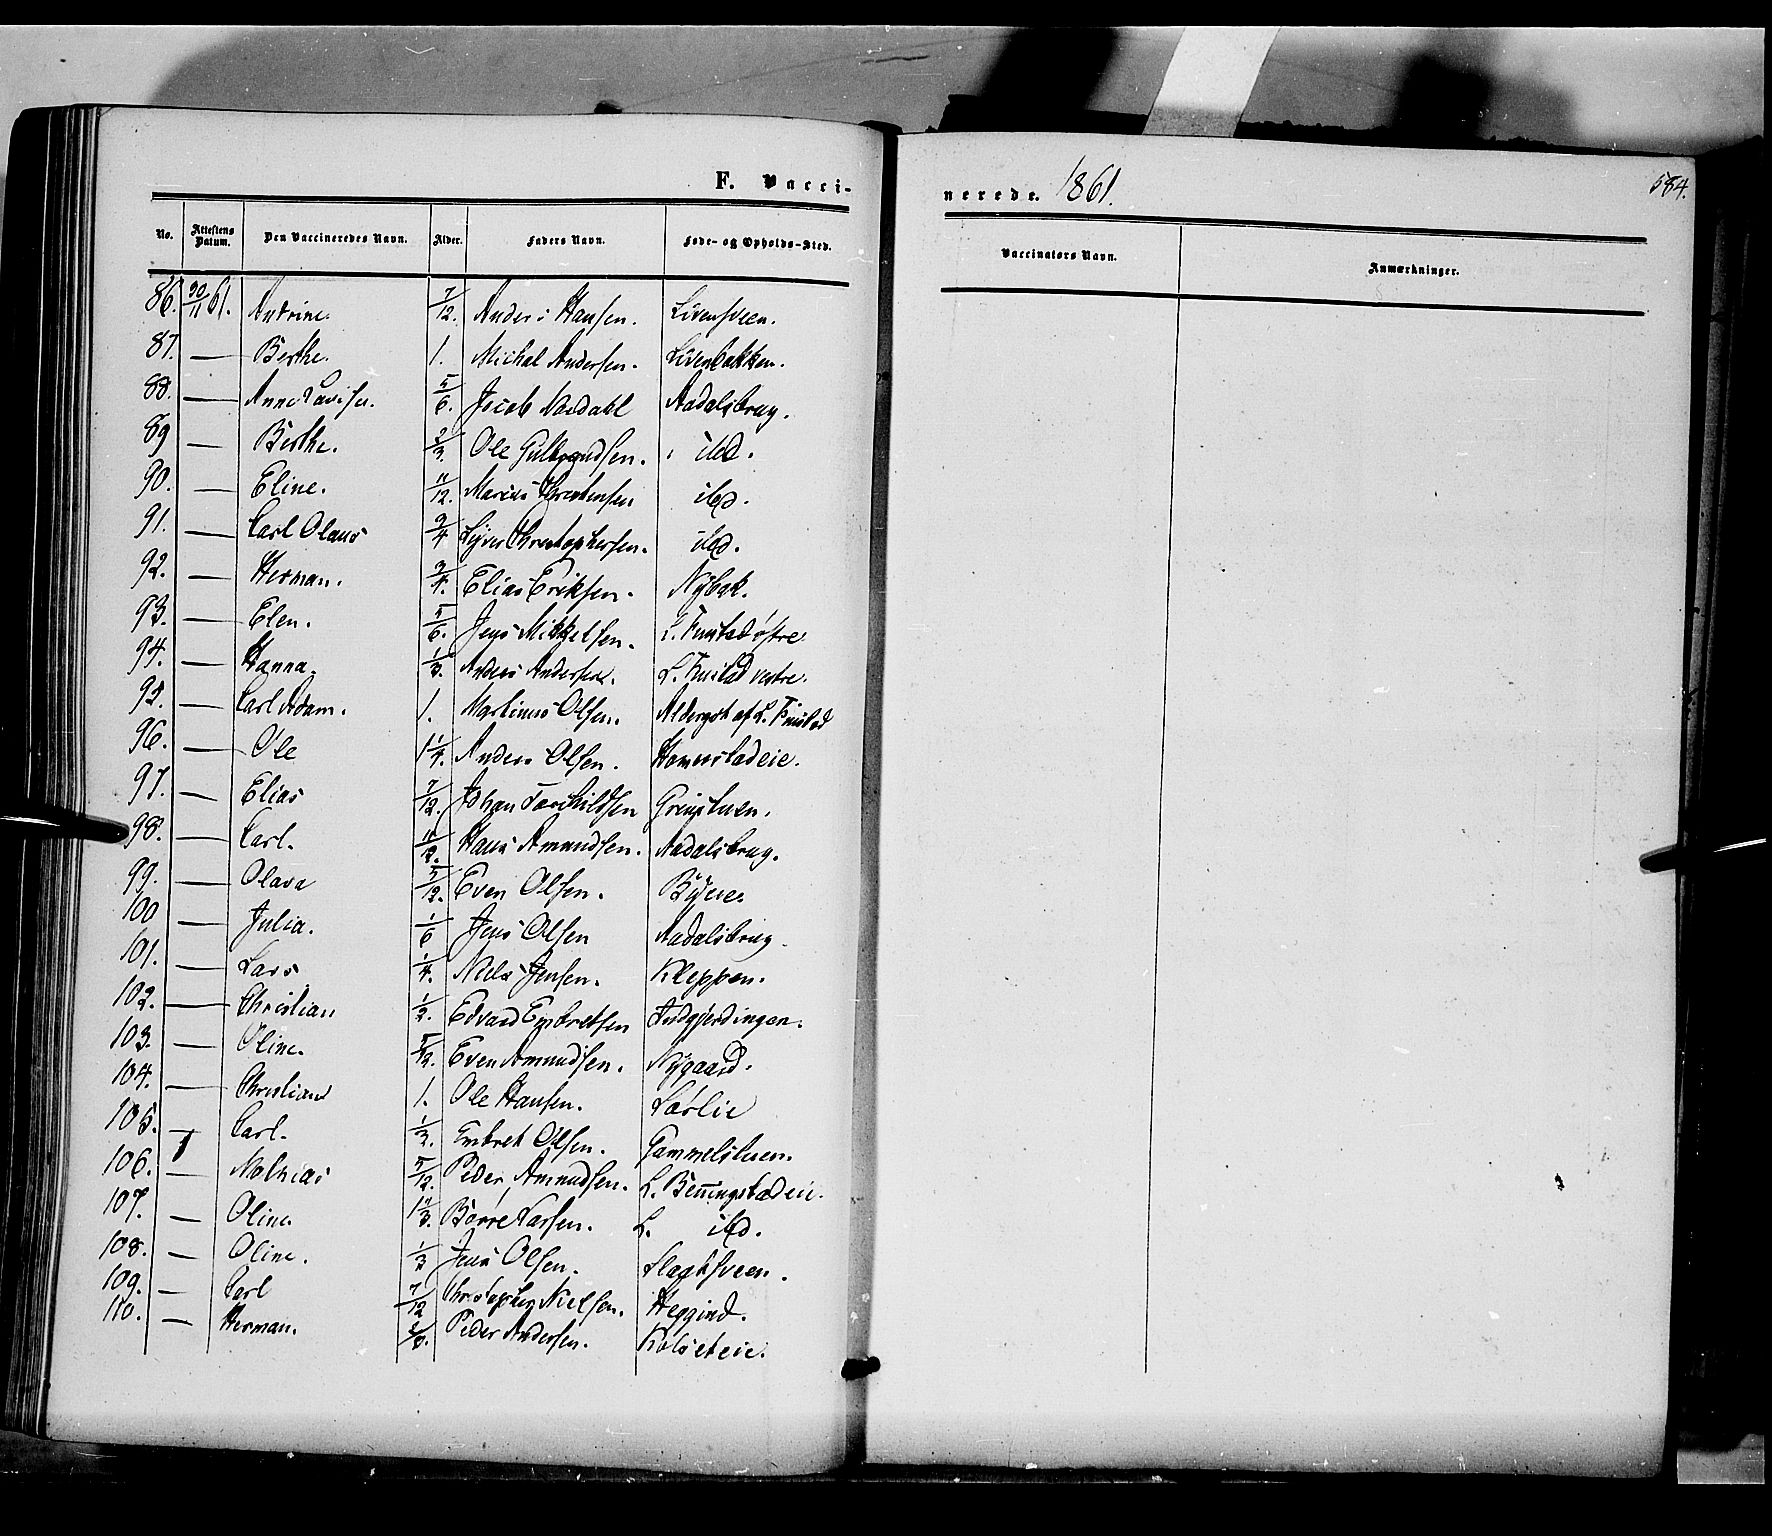 F. Vacci-
nerede. 1861.
584.
No. Attestens Datum. Den Vaccineredes Navn. Alder. Faders Navn. Føde- og Opholds-Sted. Vaccinators Navn. Anmærkninger.
86. 30/11 61. Andrine. 7/12. Anders Hansen. Livensveen.
87. — Berthe. 1. Michal Andersen. Livenbakken.
88. — Anne Lovise. 5/6. Jacob Nordahl Aadalsbrug.
89 — Berthe. 2/3. Ole Gulbrandsen. ibd.
90. — Eline. 11/12. Marius Christensen ibd.
91. — Carl Olaus 3/4 Syver Christophersen. ibd.
92. — Herman. 3/4. Elias Eriksen. Nybak.
93. — Elen. 5/6. Jens Mikkelsen. L. Finstad østre
94. — Hanna. 1/3. Anders Andersen. L. Finstad vestre.
95. — Carl Adam. 1. Martinus Olsen. af L. Finstad
96. — Ole 1 1/4. Anders Olsen. Homerstadeie.
97. — Elias 7/12. Johan Torkildsen Grinstuen.
98. — Carl. 11/12. Hans Amundsen. Aadalsbrug.
99. — Olava 5/12. Even Olsen.
100 — Julia. 1/6 Jens Olsen Aadalsbrug.
101. — Lars 1/4. Niels Jensen. Kleppen.
102. — Christian 1/2. Edvard Embretsen Indgjerdingen.
103. — Oline. 5/12. Even Amundsen. Nygaard.
104. — Christian 1. Ole Hansen. Lørlie
105. — Carl. 1/2. Embret Olsen. Gammelstuen.
106. — Mathias 5/12. Peder Amundsen. L. Benningstadeie.
107. — Oline 1 1/3. Børre Larsen. L. ibd.
108. — Oline. 1/3 Jens Olsen. Slaatsveen.
109. — Carl 7/12 Christopher Nielsen. Heggind.
110. — Herman. Peder Andersen. Kolsæteie.